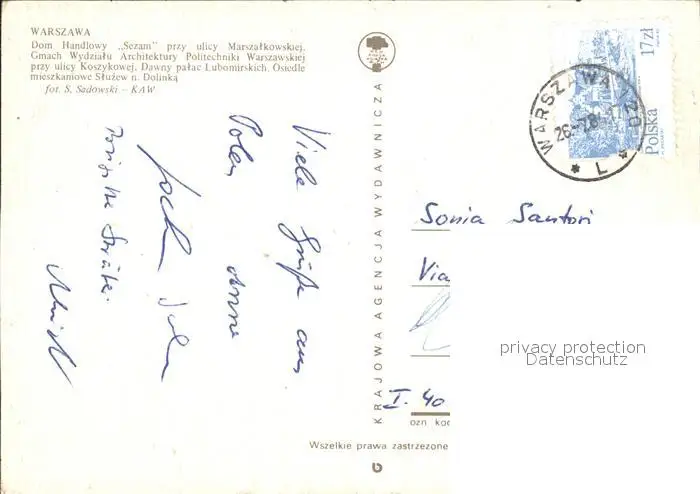 WARSZAWA
Dom Handlowy „Sezam" przy ulicy Marszałkowskiej.
Gmach Wydziału Architektury Politechniki Warszawskiej
przy ulicy Koszykowej. Dawny pałac Lubomirskich. Osiedle
mieszkaniowe Służew n. Dolinką
fot. S. Sadowski – KAW
Viele Grüße aus
Polen Anne
KRAJOWA AGENCJA WYDAWNICZA
17zł
Polska
WARSZAWA 120
L
Sonia Santori
Via
I. 40
ozn kod
Wszelkie prawa zastrzeżone
privacy protection
Datenschutz